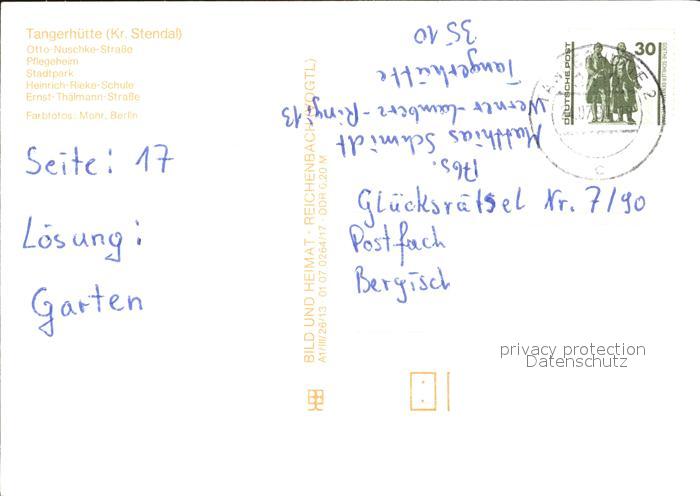 Tangerhütte (Kr. Stendal)
Otto-Nuschke-Straße
Pflegeheim
Stadtpark
Heinrich-Rieke-Schule
Ernst-Thälmann-Straße
Farbfotos: Mohr, Berlin
Seite: 17
Lösung:
Garten
BILD UND HEIMAT · REICHENBACH (VOGTL)
A1/III/26/13 01 07 0264/17 · DDR 0,20 M
Abs.
Matthias Schmidt
Werner-Lamberz-Ring 13
Tangerhütte
3510
DEUTSCHE POST
30
Glücksrätsel Nr. 7/90
Postfach
Bergisch
privacy protection
Datenschutz